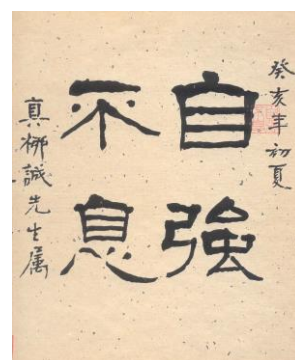 癸亥年初夏
自強
不息
真柳誠先生屬